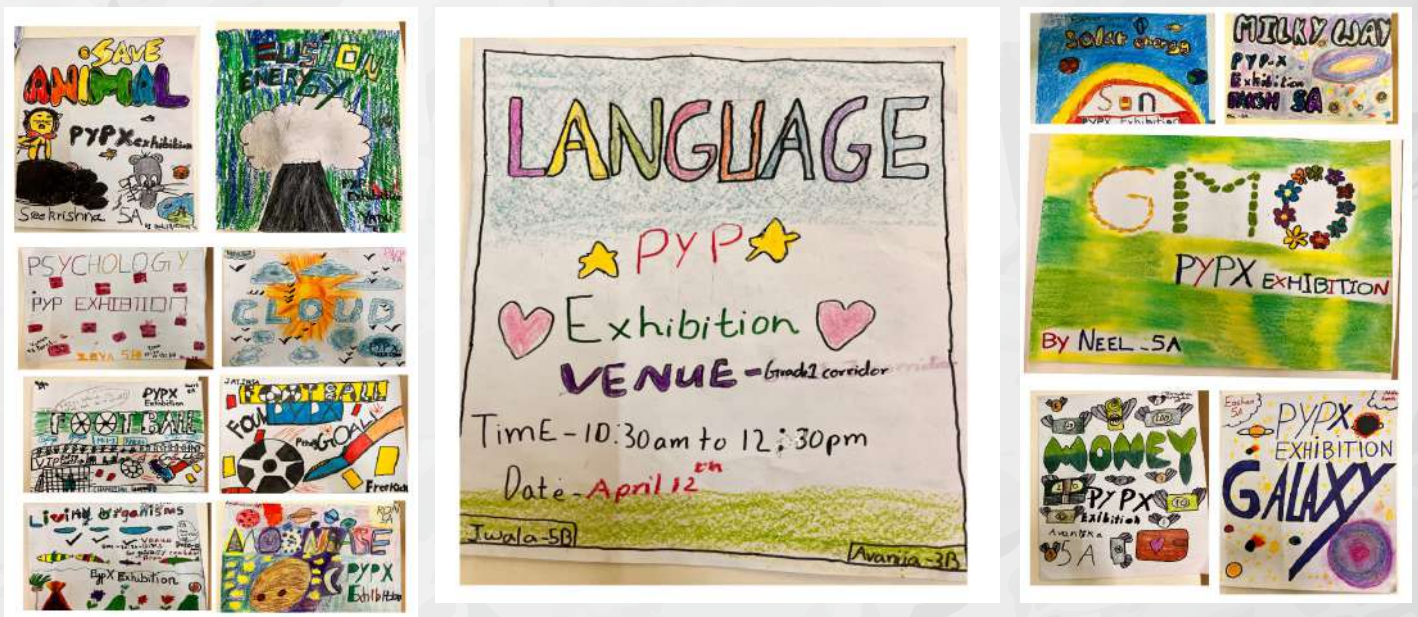 SAVE
ANIMAL
PYPX exhibition
Sreekrishna 5A
FUSION
ENERGY
PYP
Exhibition
YADU
PSYCHOLOGY
PYP EXHIBITION
ZOYA 5B
CLOUD
PYPX
PYPX
Exhibition
FOOTBALL
VIP
FOOTBALL
FOUL
GOAL
FreeKick
Living Organisms
VENUE
PYPX Exhibition
RON
5A
MOON BASE
PYPX
Exhibition
LANGUAGE
PYP
Exhibition
VENUE - Grade1 corridor
TimE - 10:30am to 12:30pm
Date - April 12th
Jwala-5B
Avania-3B
Solar energy
Sun
PYPX Exhibition
MILKY WAY
PYP-X
Exhibition
5A
GMO
PYPX EXHIBITION
BY NEEL_5A
MONEY
PYPX
Exibition
Avantika
5A
Eashan
5A
PYPX
EXHIBITION
GALAXY